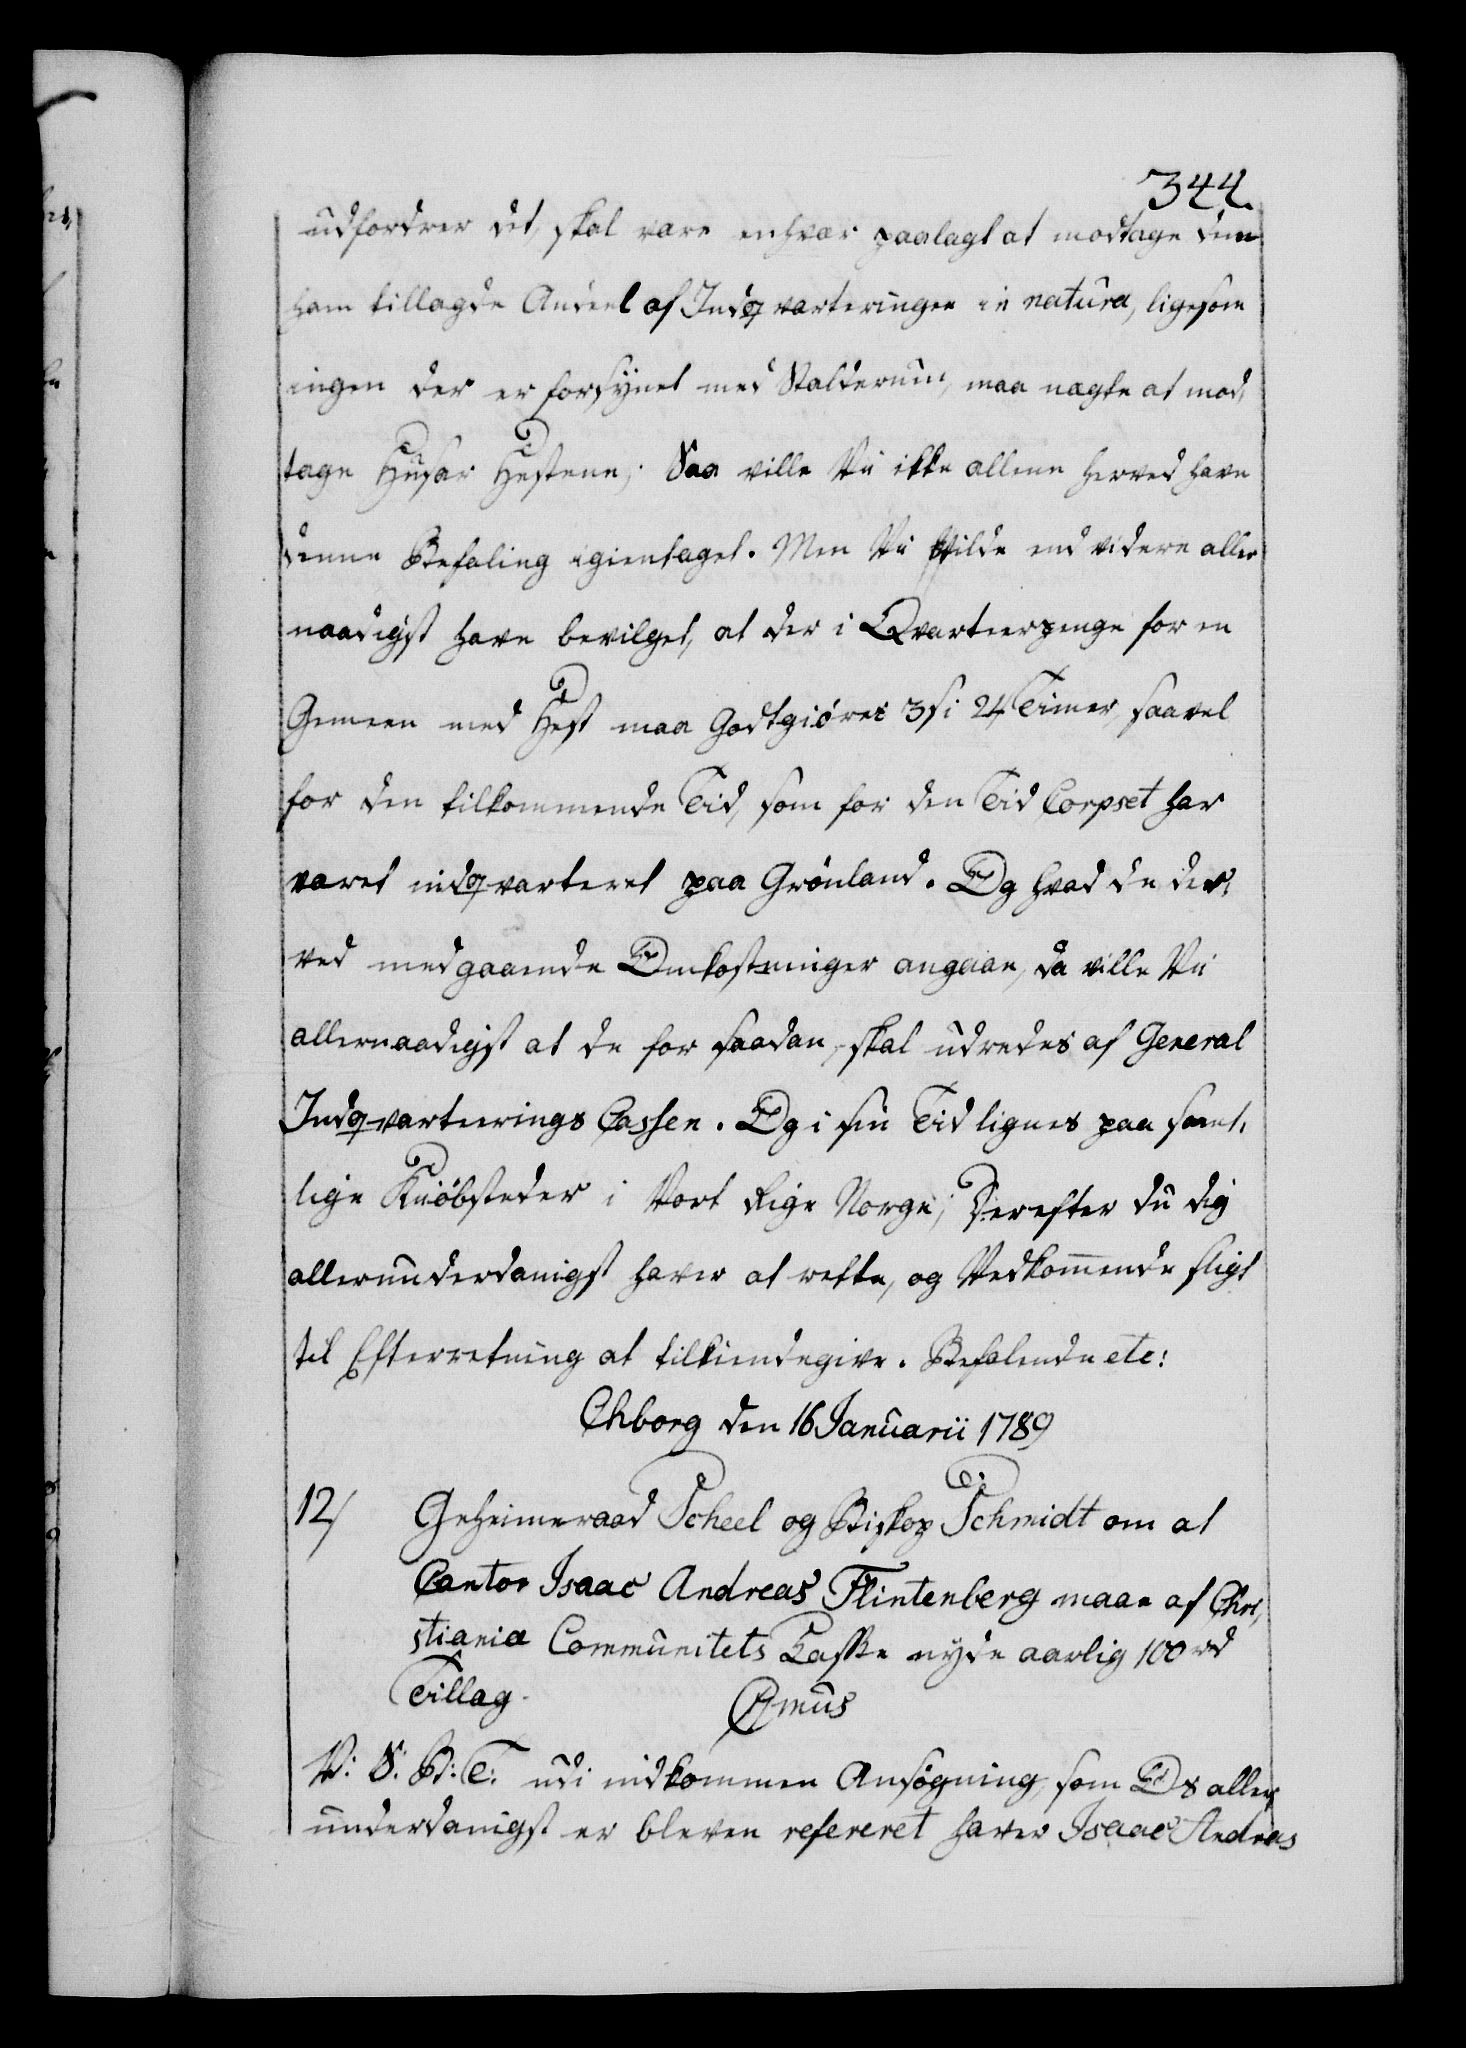 344.
udfordrer det, skal være enhver paalagt at modtage den
ham tillagde Andeel af Indqvarteringen in natura, ligesom
ingen der er forsÿnet med Stalderum, maa nægte at mod,
tage Husar Hestene; Saa ville Vii ikke allene herved have
denne Befaling igientaget. Men Vii Vilde end videre aller
naadigst have bevilget, at der i Qvarteerpenge for en
Gemeen med Hest maa Godtgiøres 3 s i 24 Timer, saavel
for den tilkommende Tid, som for den Tid Corpset har
været indqvarteret paa Grønland. Og hvad de der,
ved medgaaende Omkostninger angaae, da ville Vii
allernaadigst at de for saadan, skal udredes af General
Indqvarteerings Cassen. Og i sin Tid lignes paa samt,
lige Kiøbsteder i Vort Rige Norge; Derefter du dig
allerunderdanigst haver at rette, og Vedkommende sligt
til Efterretning at tilkiendegive. Befalende etc:
Chborg den 16 Januarii 1789
12/ Geheimeraad Scheel og Biskop Schmidt om at
Cantor Isaac Andreas Flintenberg maae af Chri,
stiania Communitets Casse nyde aarlig 100 rd
Tillag. Cfmus
V: S: B: T: udi indkommen Ansøgning, som Os aller,
underdanigst er bleven refereret haver Isaac Andreas